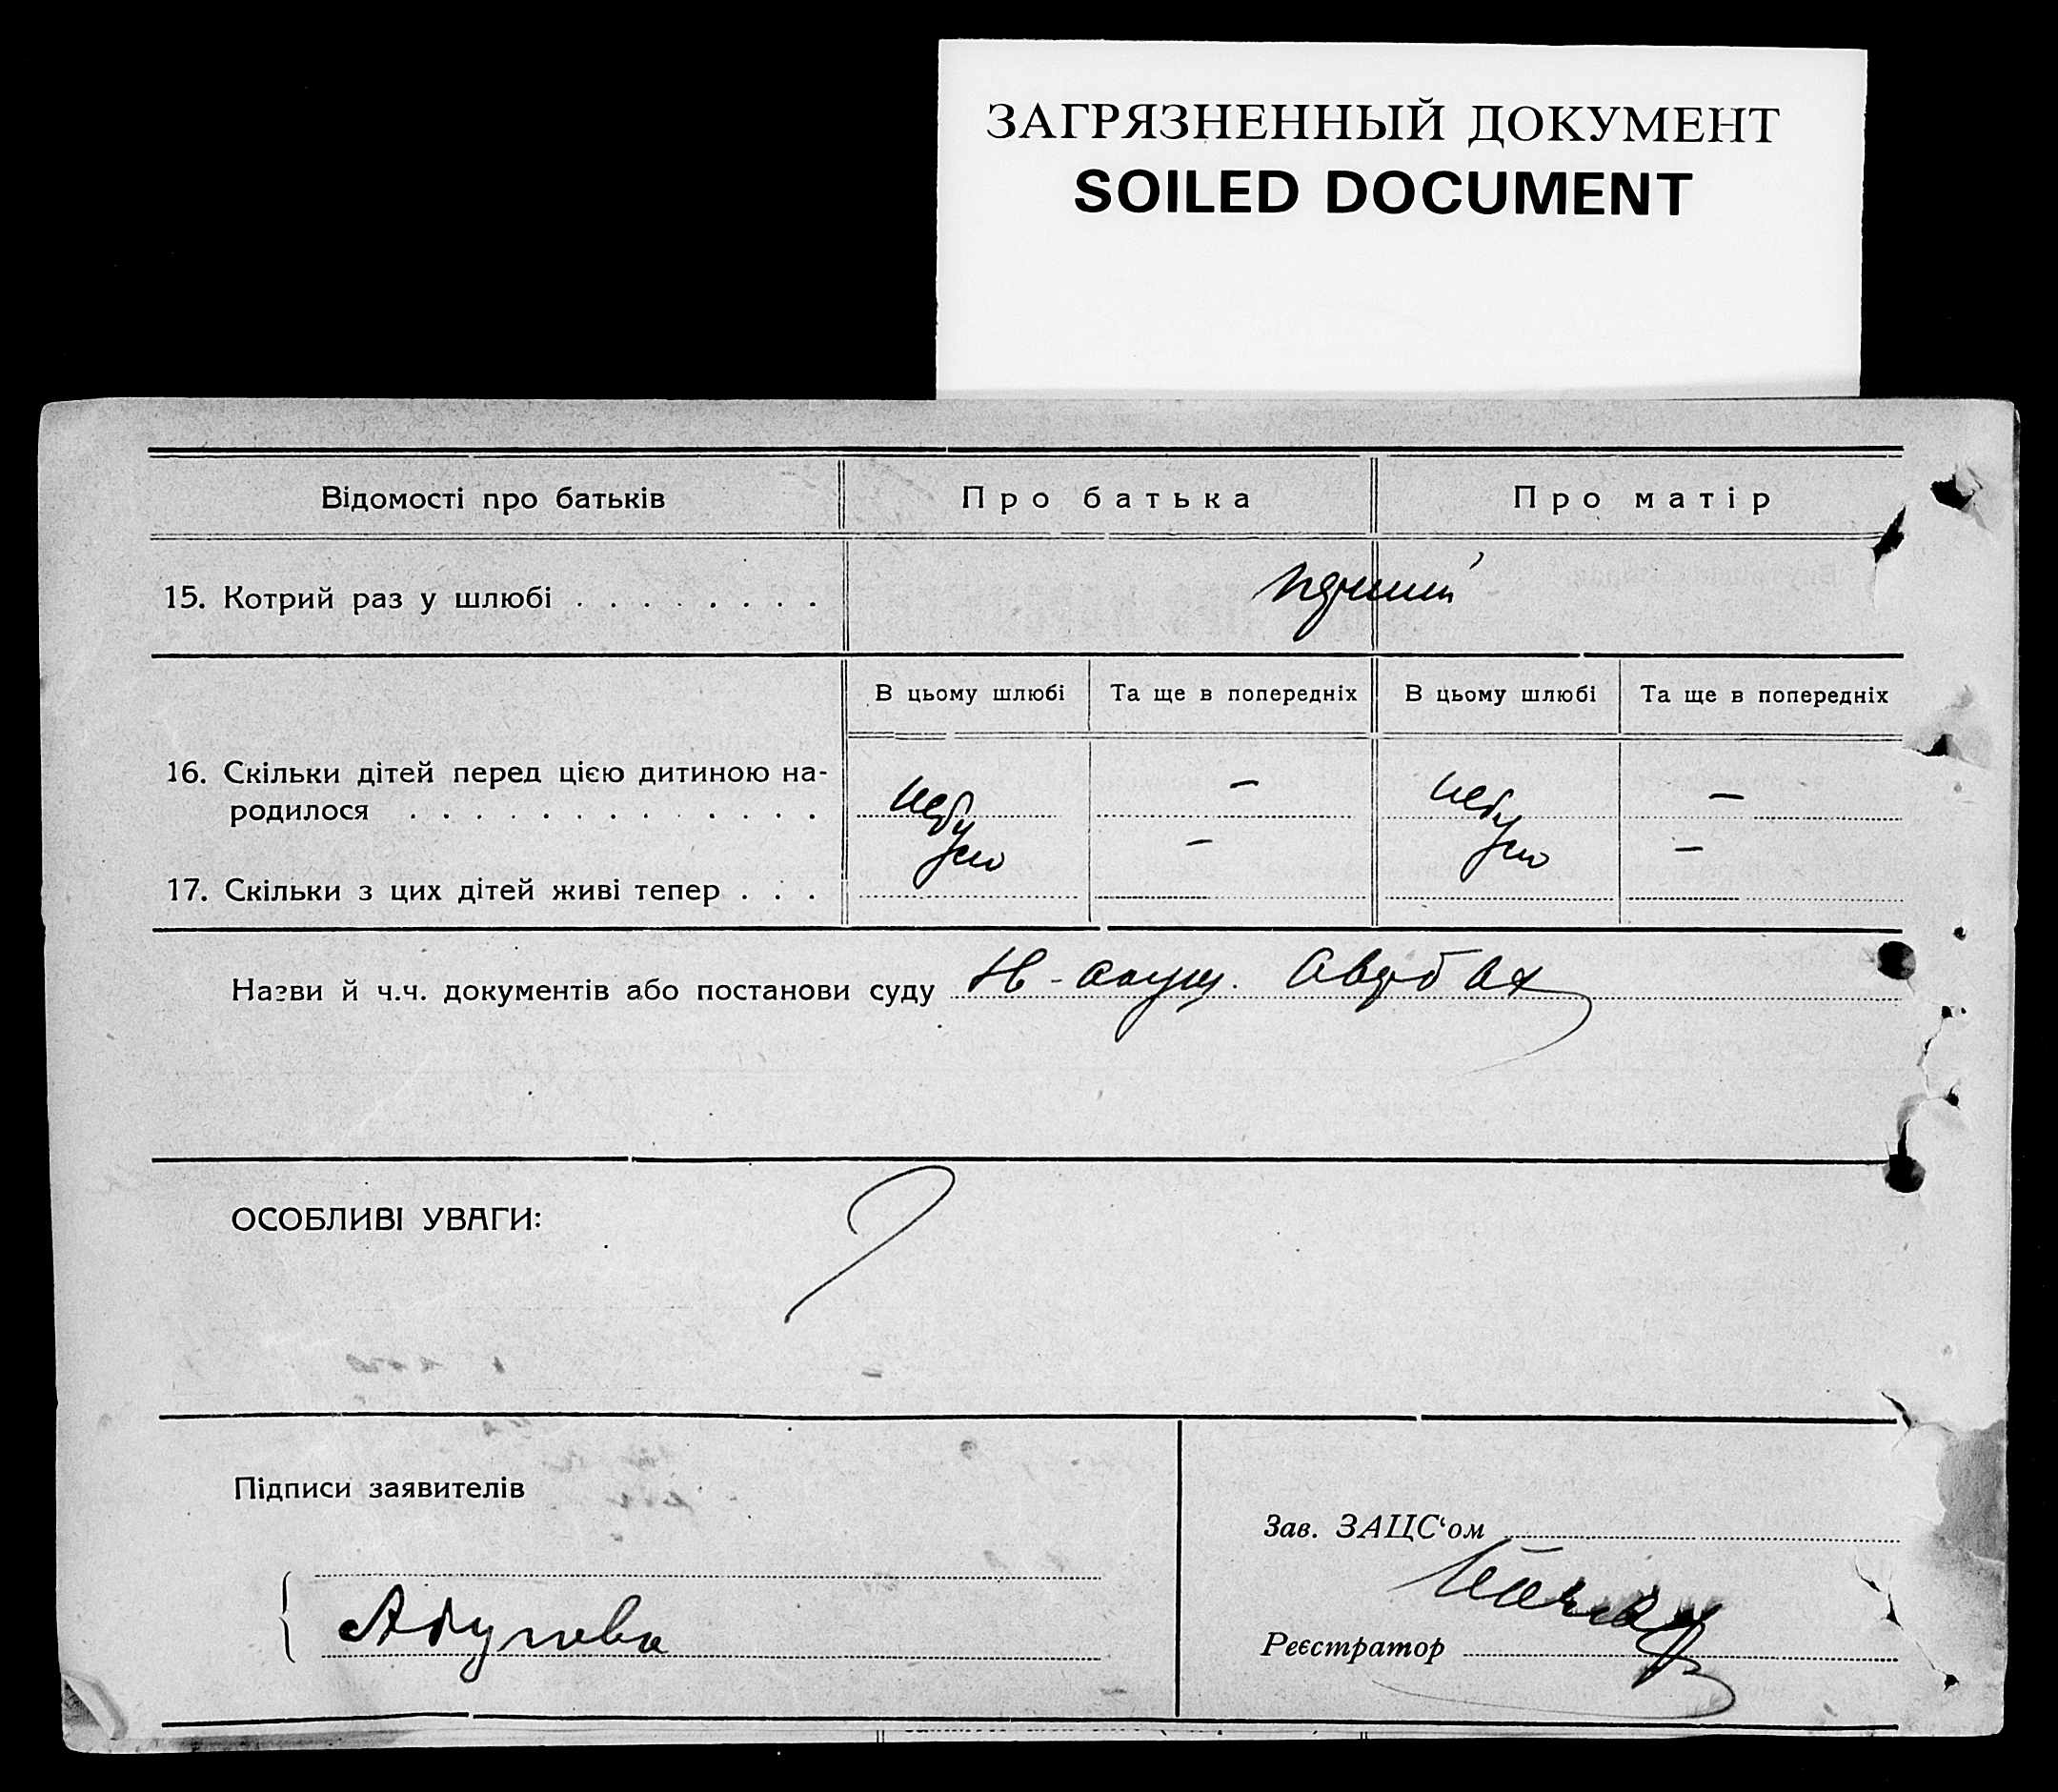 ЗАГРЯЗНЕННЫЙ ДОКУМЕНТ
SOILED DOCUMENT
Відомості про батьків Про батька Про матір
15. Котрий раз у шлюбі . . . . . . . . перший
В цьому шлюбі Та ще в попередніх В цьому шлюбі Та ще в попередніх
16. Скільки дітей перед цією дитиною на-
родилося . . . . . . . . . . . . . небуло – небуло –
17. Скільки з цих дітей живі тепер . . . – –
Назви й ч.ч. документів або постанови суду Авербах
ОСОБЛИВІ УВАГИ:
Підписи заявителів
Зав. ЗАЦС‘ом
Реєстратор